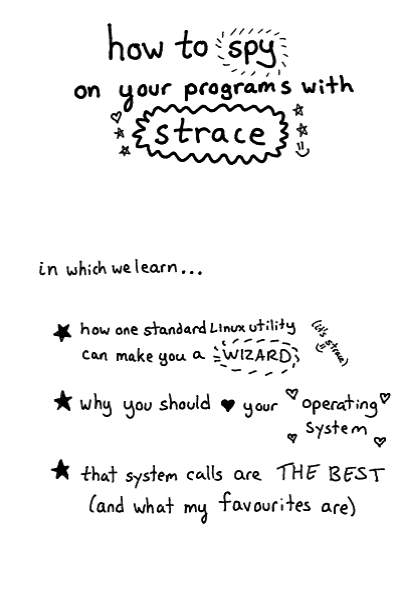 how to spy
on your programs with
strace
in which we learn...
★ how one standard Linux utility (it's strace)
can make you a WIZARD
★ why you should ♥ your operating
system
★ that system calls are THE BEST
(and what my favourites are)